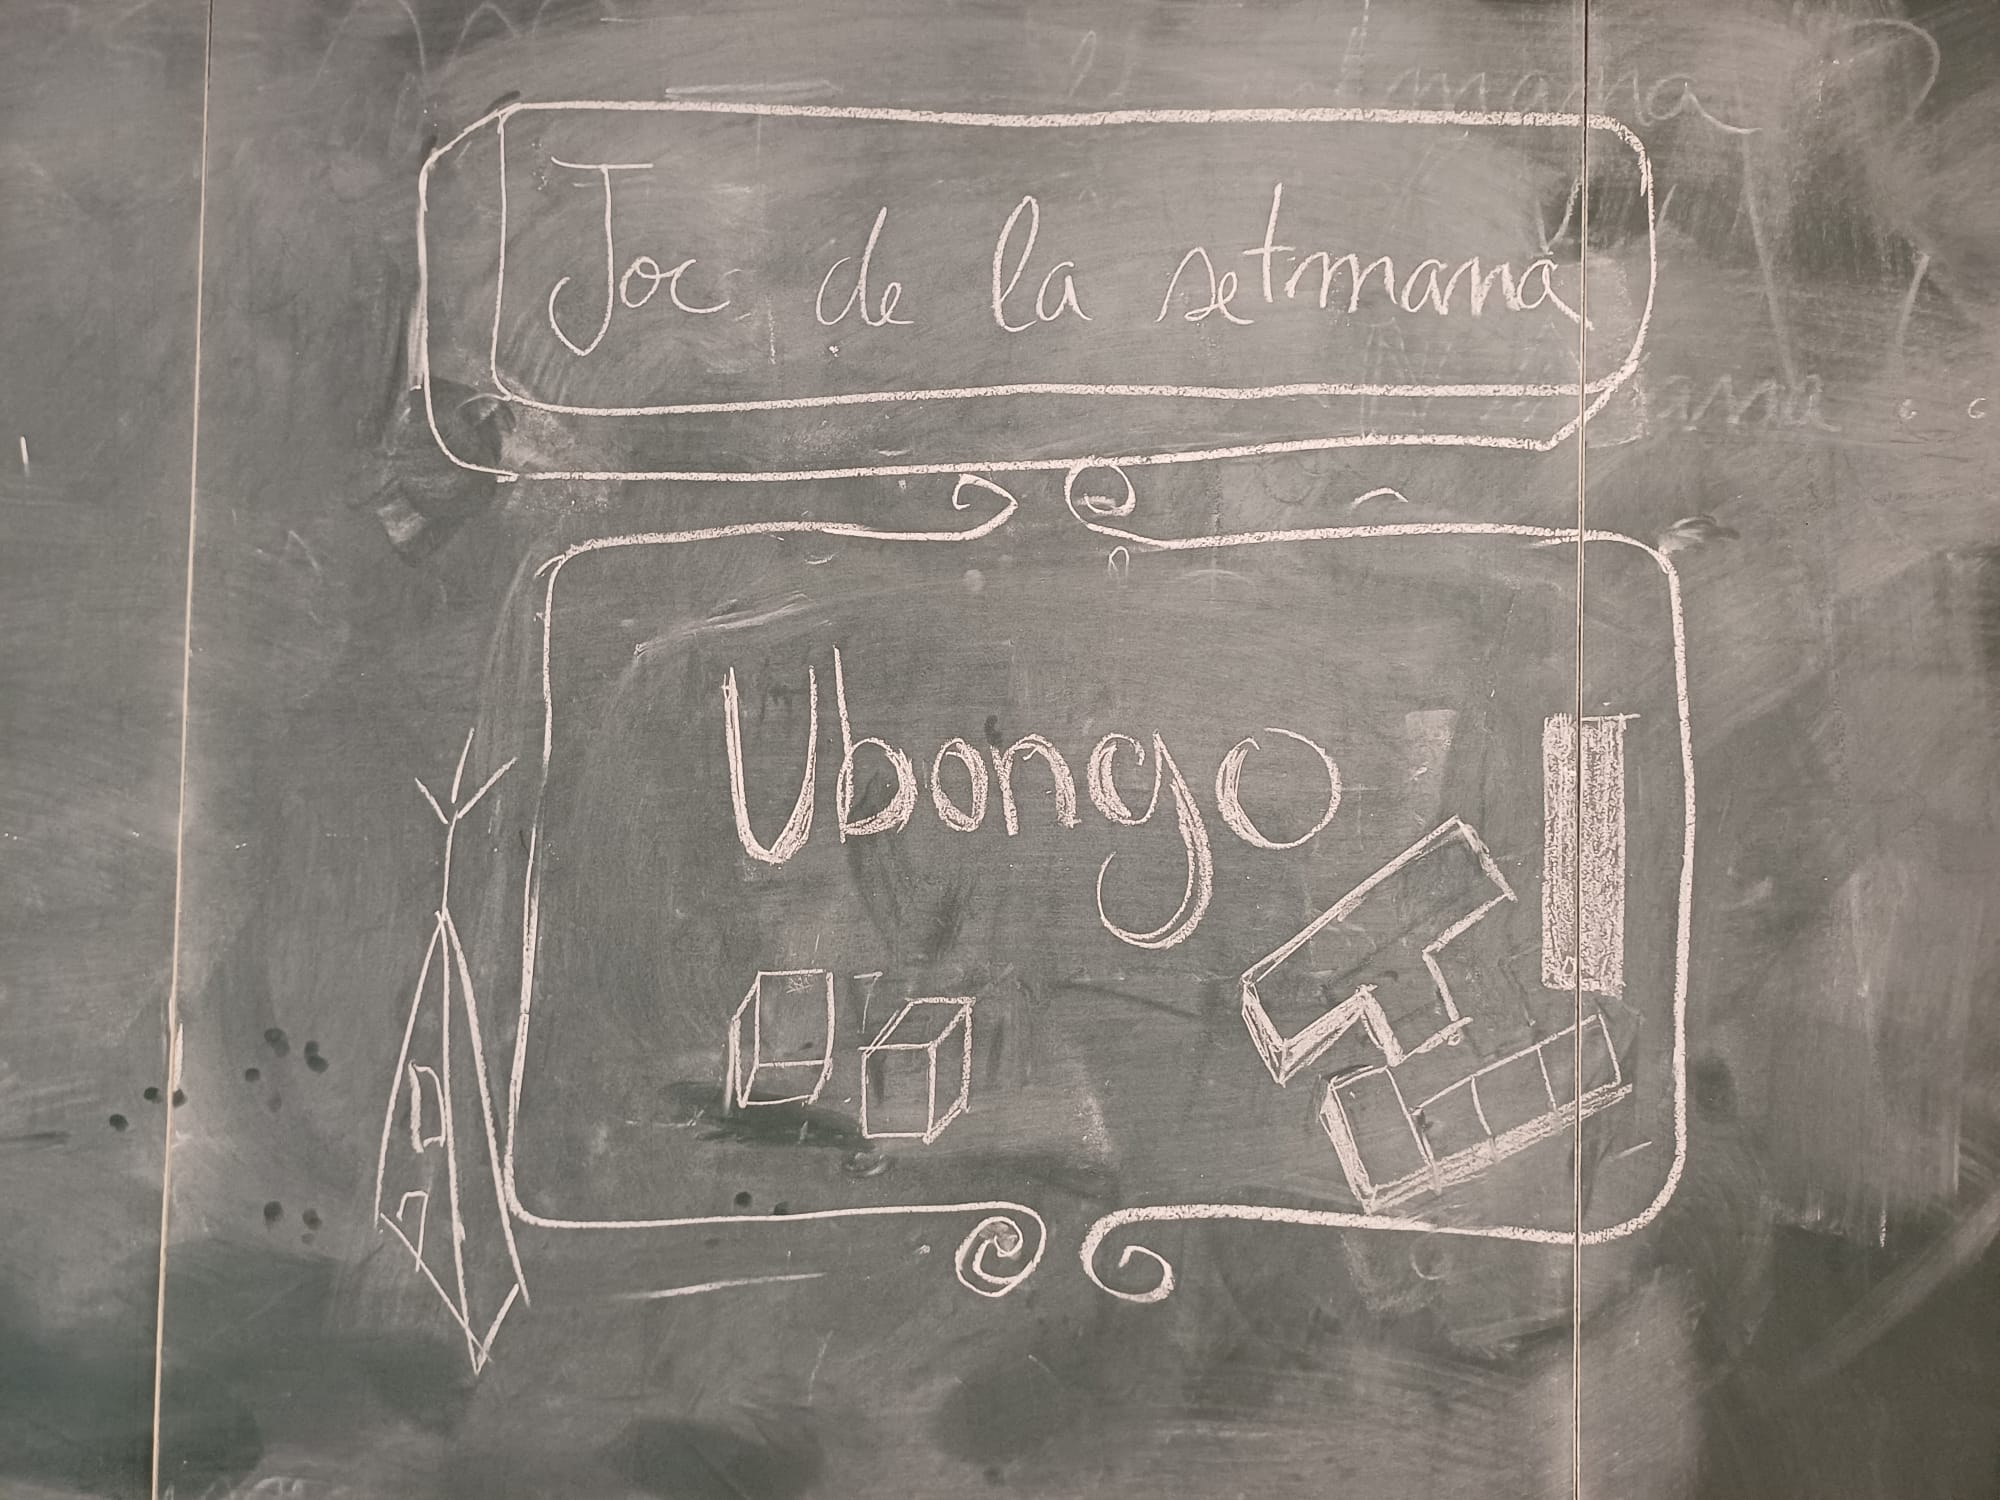 Joc de la setmana
Ubongo